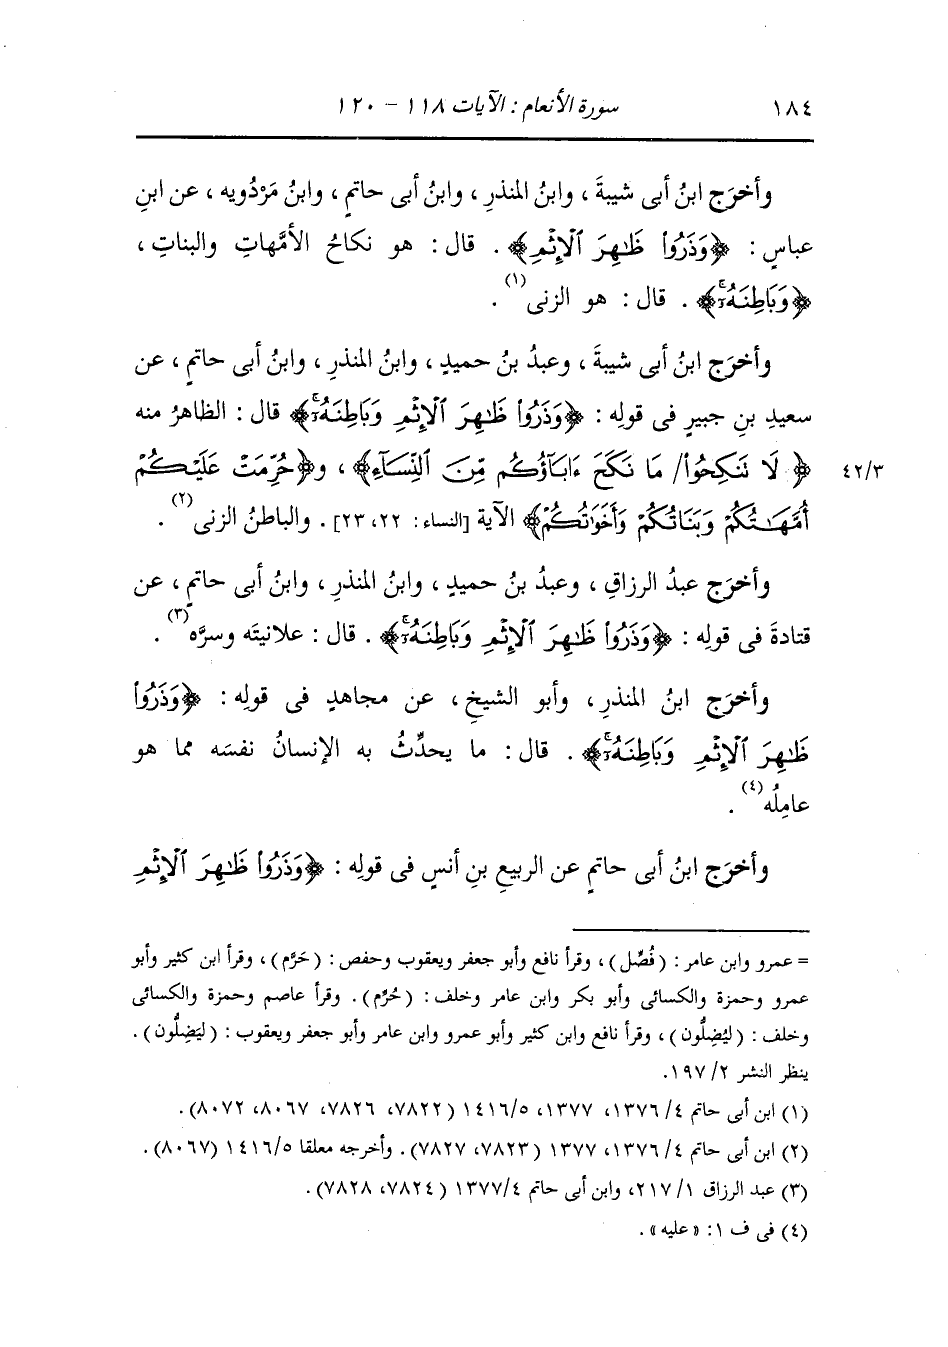 ١٨٤ سورة الأنعام : الآيات ١١٨ - ١٢٠
وأخرَج ابنُ أبى شيبةَ ، وابنُ المنذرِ ، وابنُ أبى حاتمٍ ، وابنُ مَرْدُويه ، عن ابنِ
عباسٍ : ﴿وَذَرُوا۟ ظَٰهِرَ ٱلْإِثْمِ﴾ . قال : هو نكاحُ الأمَّهاتِ والبناتِ ،
﴿وَبَاطِنَهُۥٓ﴾ . قال : هو الزنى(١) .
وأخرَج ابنُ أبى شيبةَ ، وعبدُ بنُ حميدٍ ، وابنُ المنذرِ ، وابنُ أبى حاتمٍ ، عن
سعيدِ بنِ جبيرٍ فى قولِه : ﴿وَذَرُوا۟ ظَٰهِرَ ٱلْإِثْمِ وَبَاطِنَهُۥٓ﴾ قال : الظاهرُ منه
٤٢/٣ ﴿ لَا تَنكِحُوا۟/ مَا نَكَحَ ءَابَآؤُكُم مِّنَ ٱلنِّسَآءِ﴾ ، و﴿حُرِّمَتْ عَلَيْكُمْ
أُمَّهَٰتُكُمْ وَبَنَاتُكُمْ وَأَخَوَٰتُكُمْ﴾ الآية [النساء : ٢٢، ٢٣] . والباطنُ الزنى(٢) .
وأخرَج عبدُ الرزاقِ ، وعبدُ بنُ حميدٍ ، وابنُ المنذرِ ، وابنُ أبى حاتمٍ ، عن
قتادةَ فى قولِه : ﴿وَذَرُوا۟ ظَٰهِرَ ٱلْإِثْمِ وَبَاطِنَهُۥٓ﴾ . قال : علانيتَه وسرَّه(٣) .
وأخرَج ابنُ المنذرِ ، وأبو الشيخِ ، عن مجاهدٍ فى قولِه : ﴿وَذَرُوا۟
ظَٰهِرَ ٱلْإِثْمِ وَبَاطِنَهُۥٓ﴾ . قال : ما يحدِّثُ به الإنسانُ نفسَه مما هو
عامِلُه(٤) .
وأخرَج ابنُ أبى حاتمٍ عن الربيعِ بنِ أنسٍ فى قولِه : ﴿وَذَرُوا۟ ظَٰهِرَ ٱلْإِثْمِ
= عمرو وابن عامر : (فُصِّل) ، وقرأ نافع وأبو جعفر ويعقوب وحفص : (حَرَّم) ، وقرأ ابن كثير وأبو
عمرو وحمزة والكسائى وأبو بكر وابن عامر وخلف : (حُرِّم) . وقرأ عاصم وحمزة والكسائى
وخلف : (ليُضِلُّون) ، وقرأ نافع وابن كثير وأبو عمرو وابن عامر وأبو جعفر ويعقوب : (ليَضِلُّون) .
ينظر النشر ١٩٧/٢.
(١) ابن أبى حاتم ١٣٧٦/٤، ١٣٧٧، ١٤١٦/٥ (٧٨٢٢، ٧٨٢٦، ٨٠٦٧، ٨٠٧٢).
(٢) ابن أبى حاتم ١٣٧٦/٤، ١٣٧٧ (٧٨٢٣، ٧٨٢٧). وأخرجه معلقا ١٤١٦/٥ (٨٠٦٧).
(٣) عبد الرزاق ٢١٧/١، وابن أبى حاتم ١٣٧٧/٤ (٧٨٢٤، ٧٨٢٨).
(٤) فى ف ١: «عليه» .